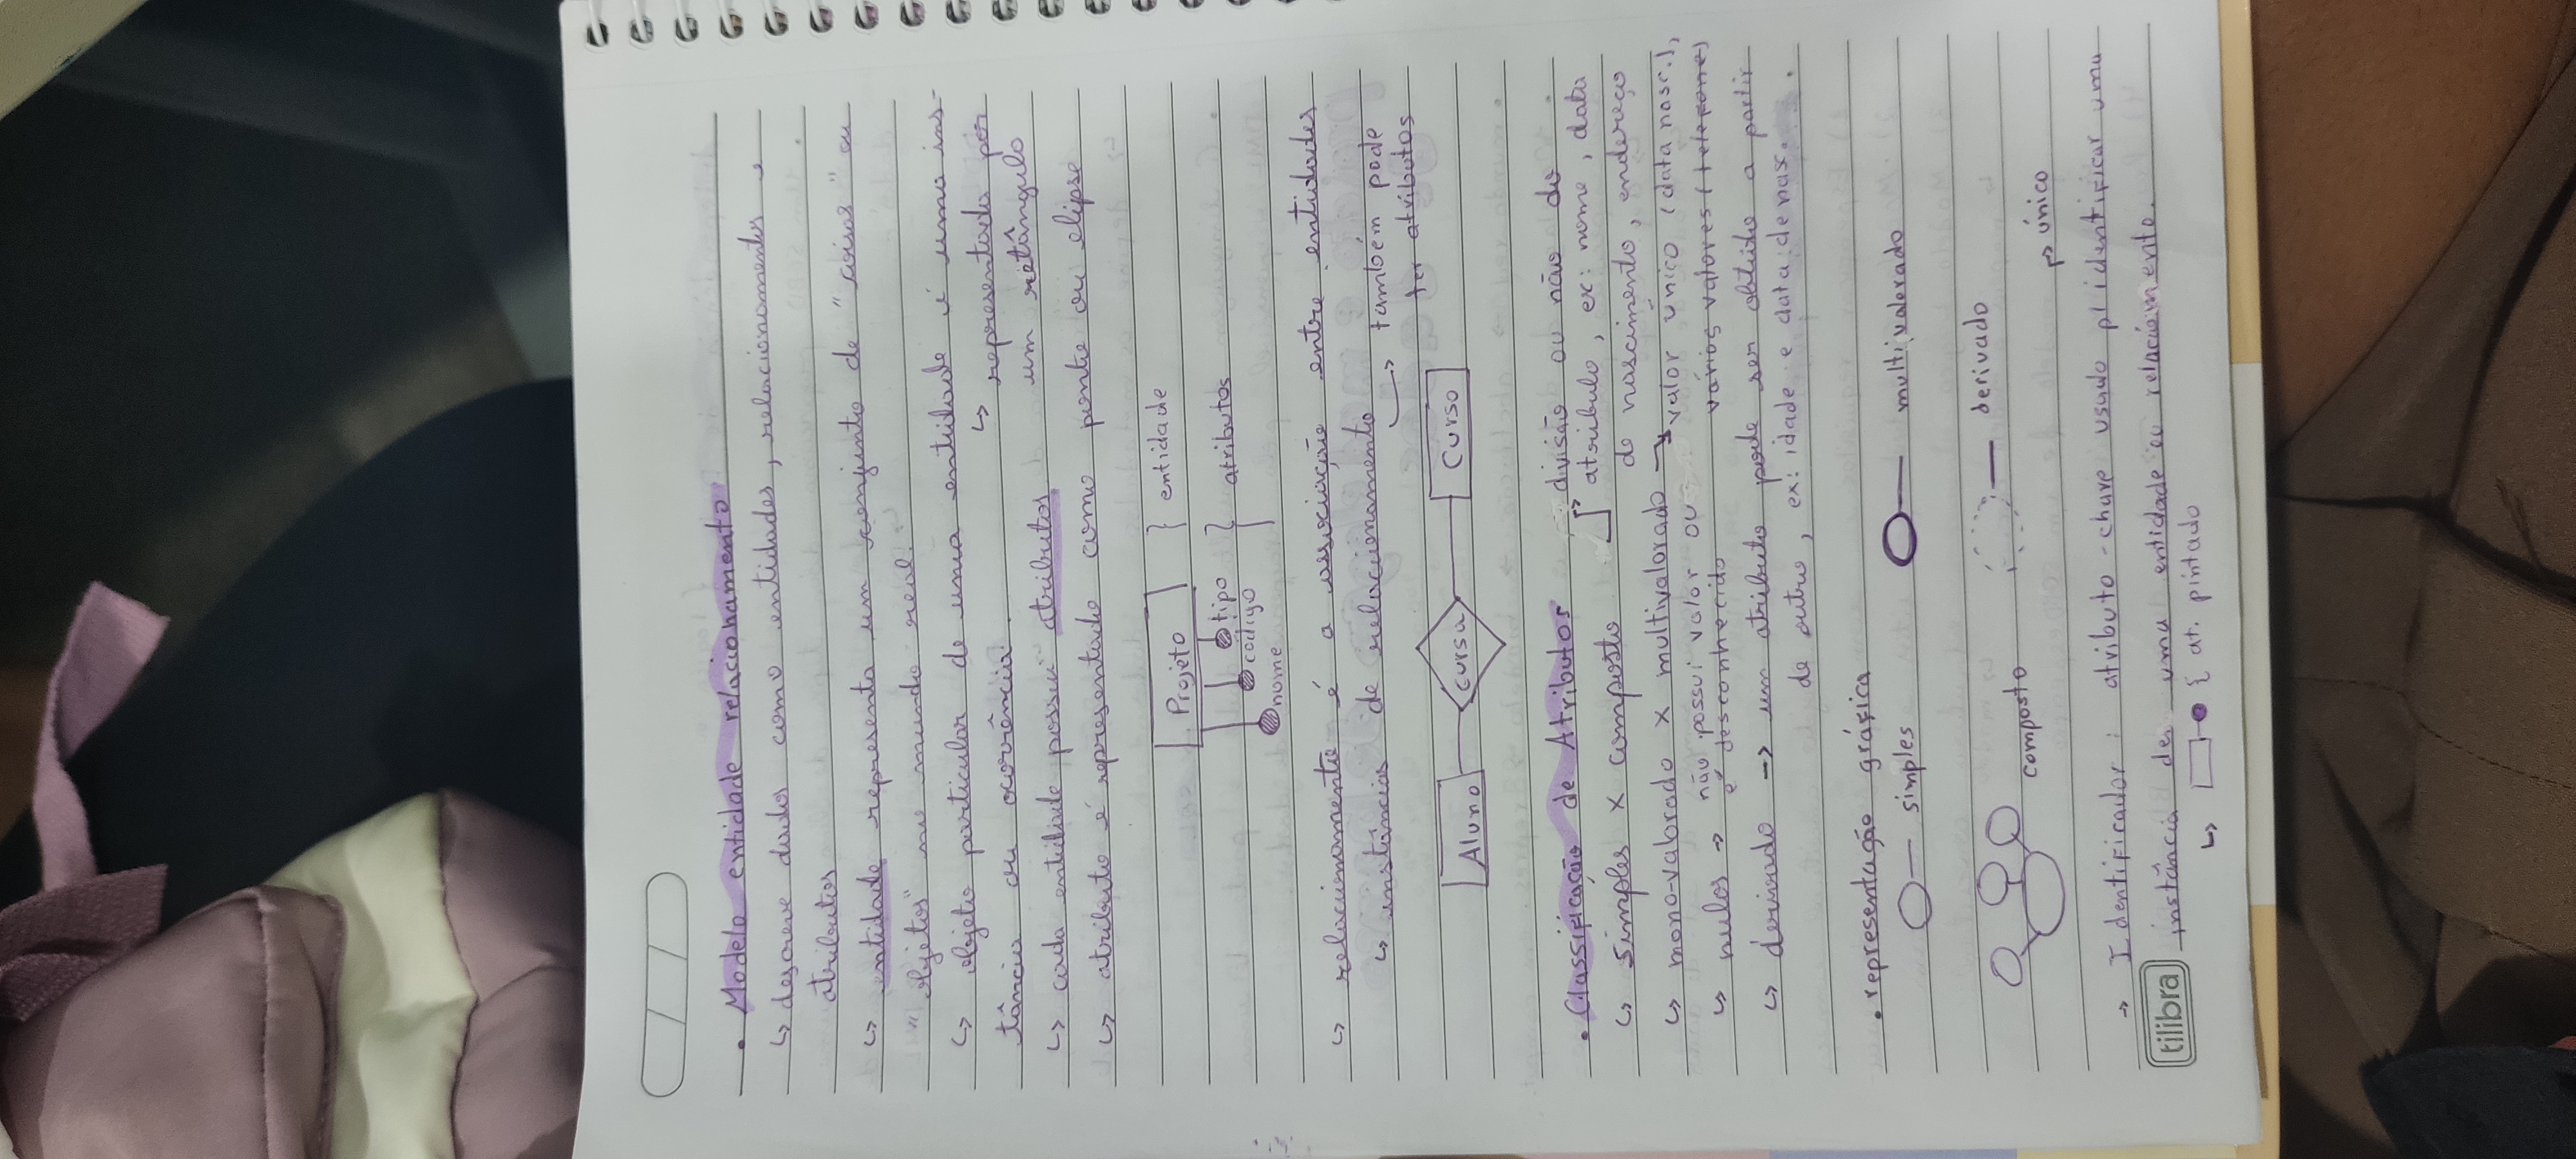 • Modelo entidade relacionamento
↳ descreve dados como entidades, relacionamentos e
atributos
↳ entidade representa um conjunto de "coisas" ou
"objetos" no mundo real.
↳ objeto particular de uma entidade é uma ins-
tância ou ocorrência.
↳ representada por
um retângulo
↳ cada entidade possui atributos
↳ atributo é representado como ponto ou elipse
Projeto } entidade
tipo
código
nome
} atributos
↳ relacionamento é a associação entre entidades
↳ instâncias de relacionamento
→ também pode
ter atributos
Aluno cursa Curso
• Classificação de Atributos
↳ simples x composto
→ divisão ou não do
atributo, ex: nome, data
de nascimento, endereço
↳ mono-valorado x multivalorado → valor único (data nasc.),
vários valores (telefone)
↳ nulos → não possui valor ou
é desconhecido
↳ derivado → um atributo pode ser obtido a partir
de outro, ex: idade e data de nasc.
• representação gráfica
simples multivalorado
composto derivado
↱ único
→ Identificador: atributo-chave usado p/ identificar uma
instância de uma entidade ou relaciomento.
↳ { at. pintado
tilibra